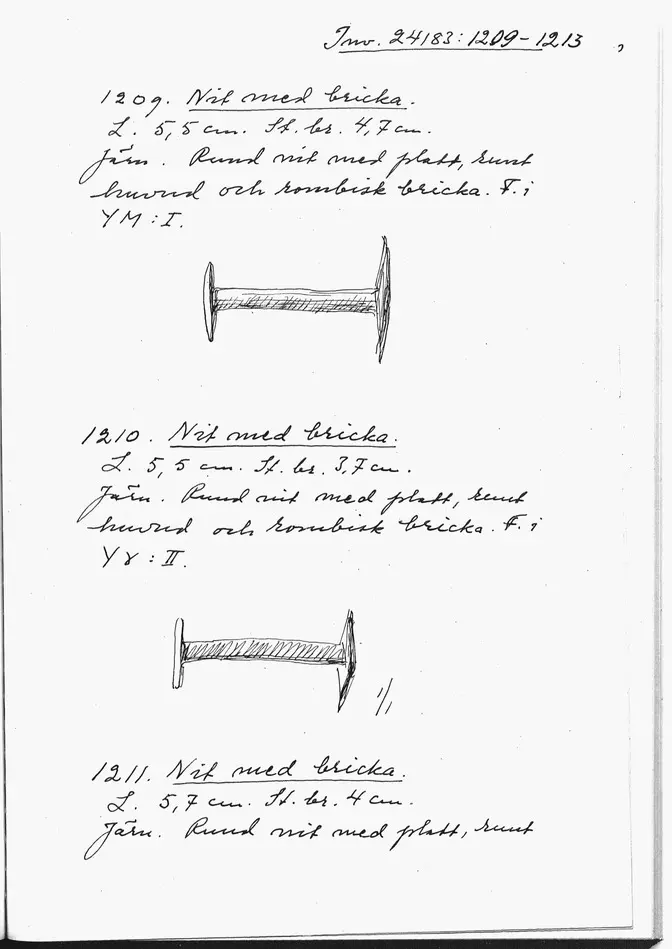 Inv. 24183:1209-1213
1209. Nit med bricka.
L. 5,5 cm. St. br. 4,7 cm.
Järn. Rund nit med platt, runt
huvud och rombisk bricka. F. i
YM : I.
1210. Nit med bricka.
L. 5,5 cm. St. br. 3,7 cm.
Järn. Rund nit med platt, runt
huvud och rombisk bricka. F. i
YX : II.
1/1
1211. Nit med bricka.
L. 5,7 cm. St. br. 4 cm.
Järn. Rund nit med platt, runt